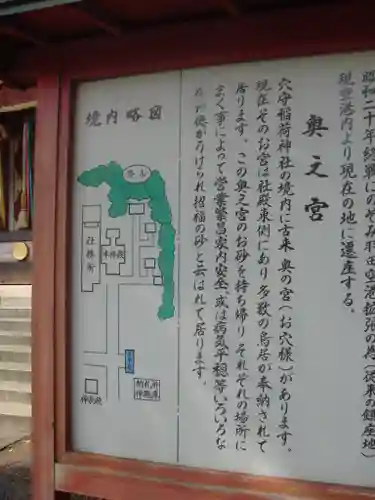 昭和二十年終戦にのぞみ羽田空港拡張の為(従来の鎮座地)
現空港内より現在の地に遷座する。
奥之宮
穴守稲荷神社の境内に古来 奥の宮(お穴様)があります。
現在そのお宮は社殿東側にあり 多数の鳥居が奉納されて
居ります。この奥之宮のお砂を持ち帰り それぞれの場所に
まく事によって営業繁昌家内安全、或は病気平穏等いろいろな
うけられ招福の砂と云はれて居ります。
境内略図
お山
社務所
本社殿
納札所
神楽殿